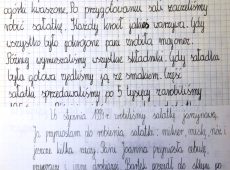 ogórki kwaszone. Po przygotowaniu sali zaczęliśmy
robić sałatkę. Każdy kroił jakieś warzywa. Gdy
wszystko było pokrojone pani zrobiła majonez.
Później wymieszaliśmy wszystkie składniki. Gdy sałatka
była gotowa zjedliśmy ją ze smakiem. Część
sałatki sprzedawaliśmy po 5 tysięcy
W styczniu robiliśmy sałatkę jarzynową.
Ja przyniosłam do robienia sałatki: nóż i
jeszcze kilka rzeczy. Pani Joanna przyniosła obrus,
i inne Bartek poszedł do sklepu po